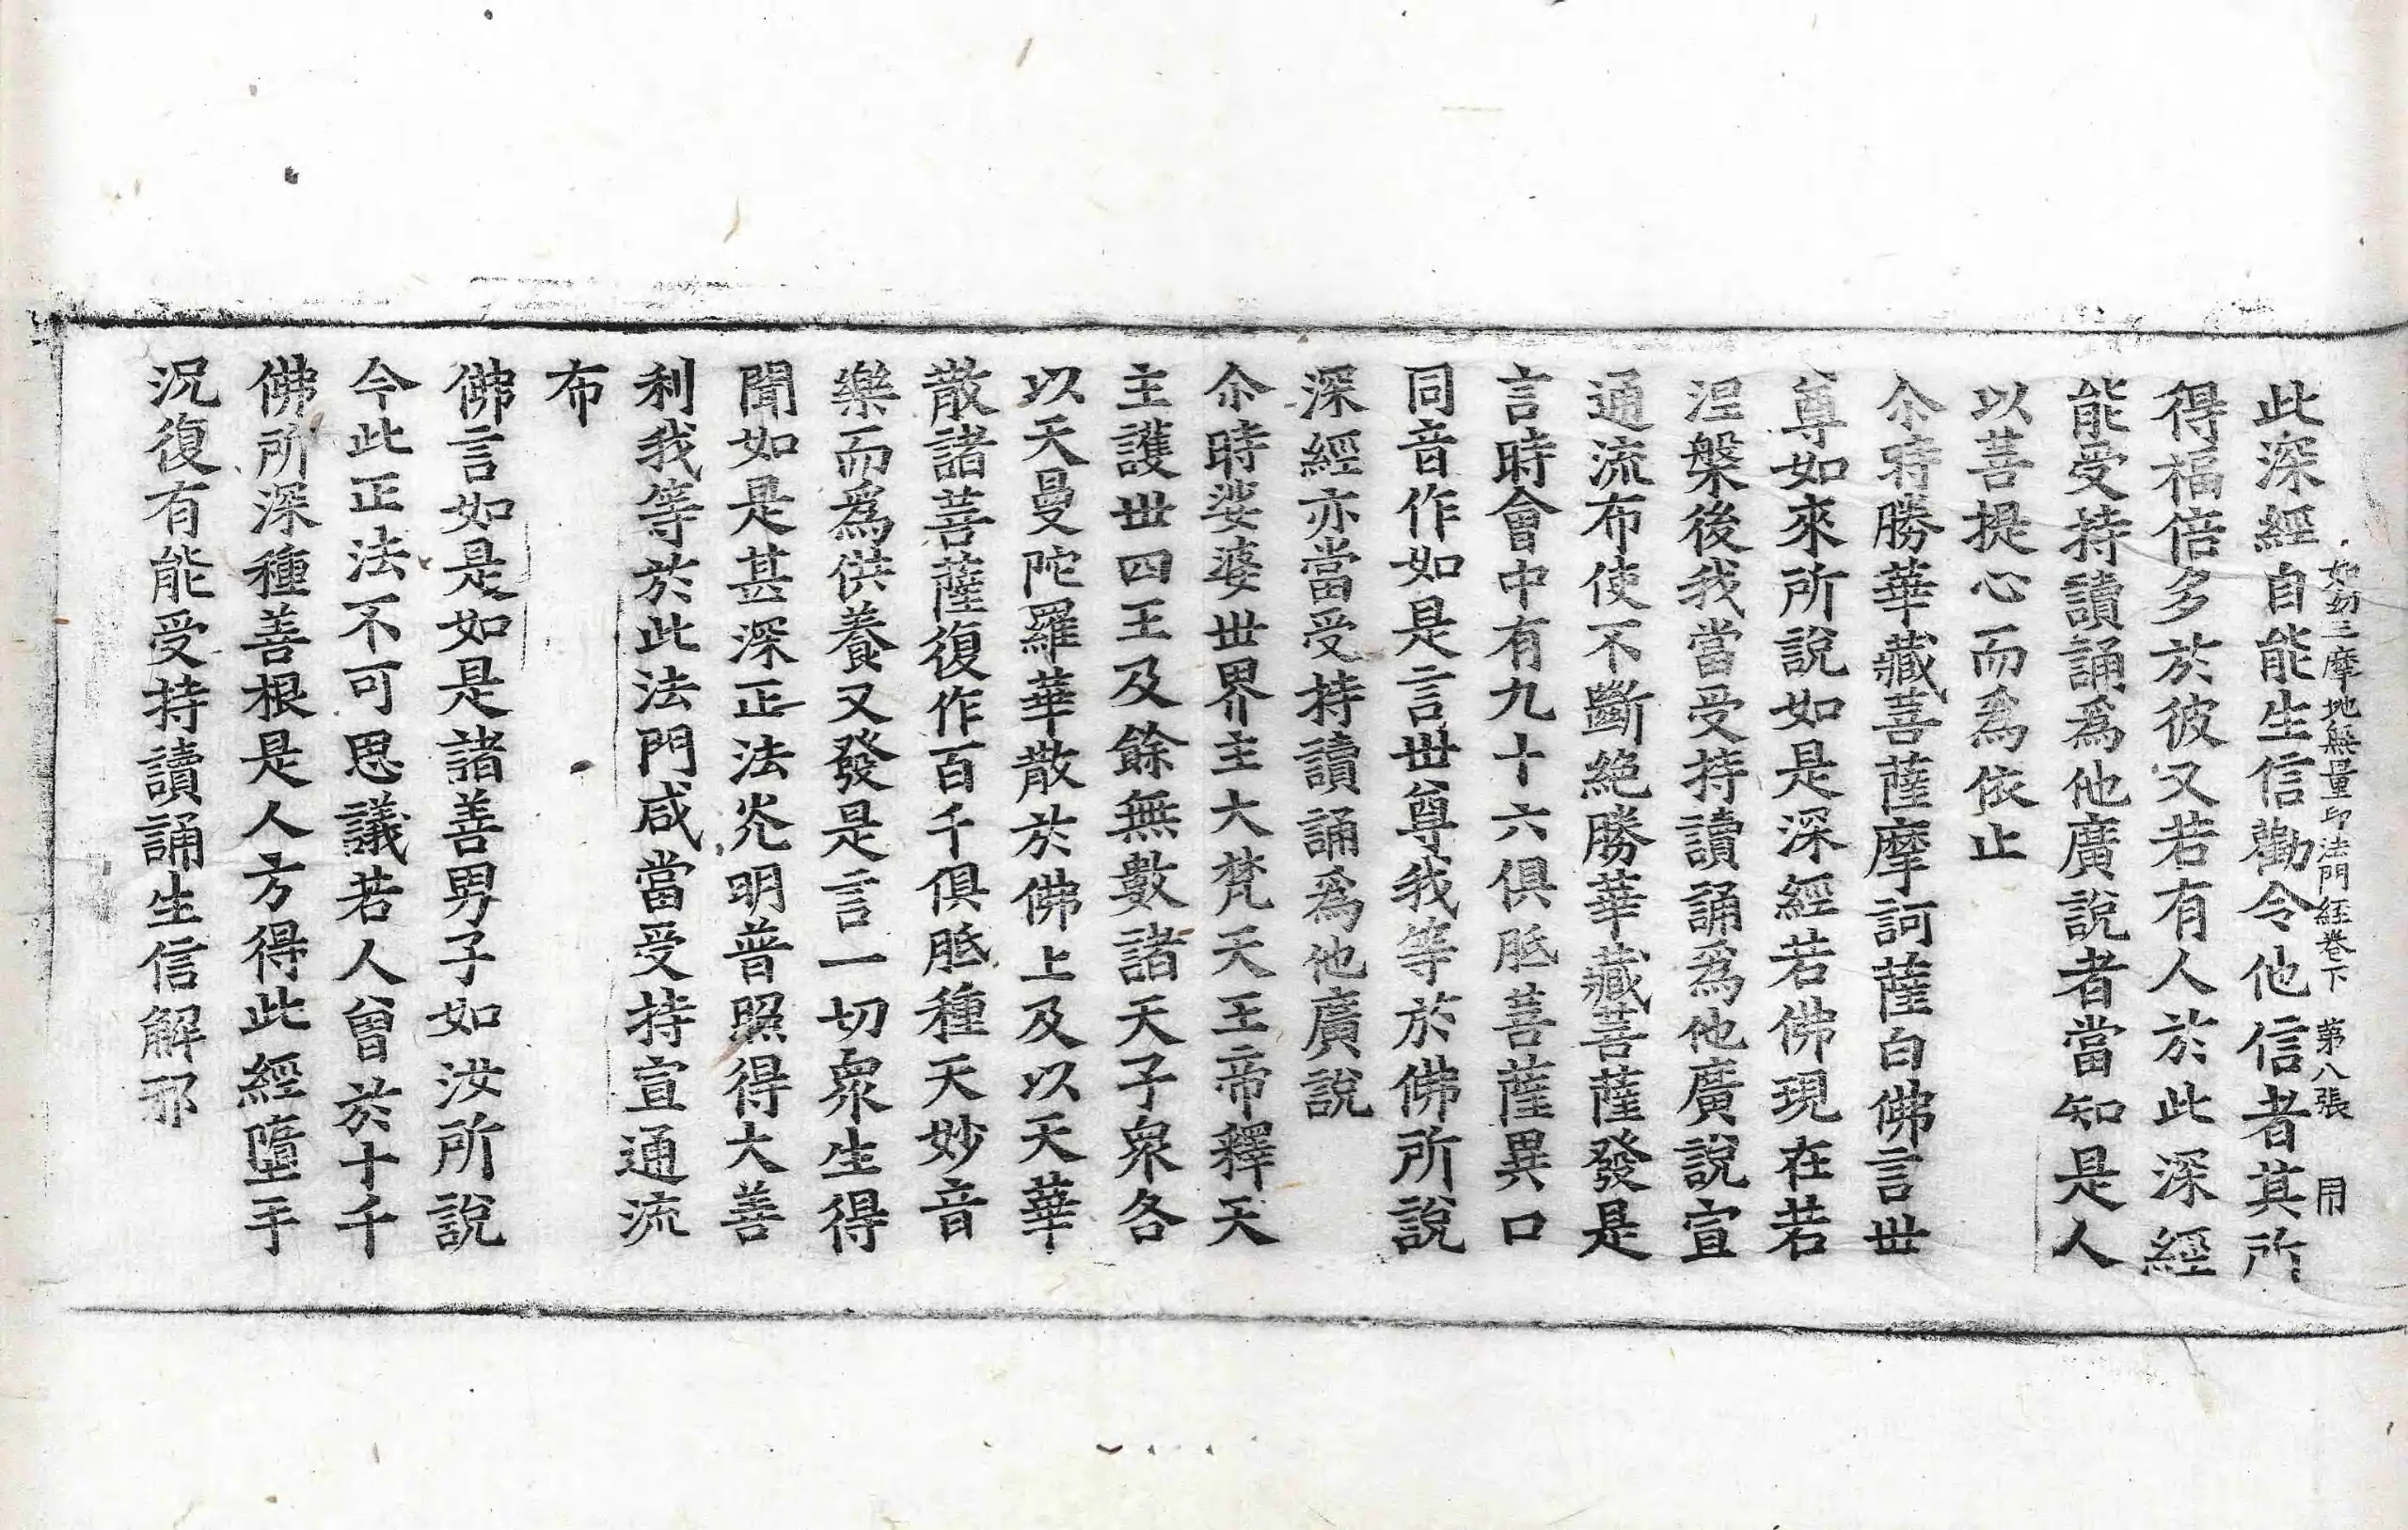 如幻三摩地無量印法門経卷下 第八張 同
此深經自能生信勸令他信者其所
得福倍多於彼又若有人於此深經
能受持讀誦爲他廣說者當知是人
以菩提心而爲依止
尒時勝華藏菩薩摩訶薩白佛言世
尊如來所說如是深經若佛現在若
涅槃後我當受持讀誦爲他廣說宣
通流布使不斷絶勝華藏菩薩發是
言時會中有九十六俱胝菩薩異口
同音作如是言世尊我等於佛所說
深經亦當受持讀誦爲他廣說
尒時娑婆世界主大梵天王帝釋天
主護世四王及餘無數諸天子衆各
以天曼陀羅華散於佛上及以天華
散諸菩薩復作百千俱胝種天妙音
樂而爲供養又發是言一切衆生得
聞如是甚深正法光明普照得大善
利我等於此法門咸當受持宣通流
布
佛言如是如是諸善男子如汝所說
今此正法不可思議若人曾於十千
佛所深種善根是人方得此經墮手
況復有能受持讀誦生信解邪